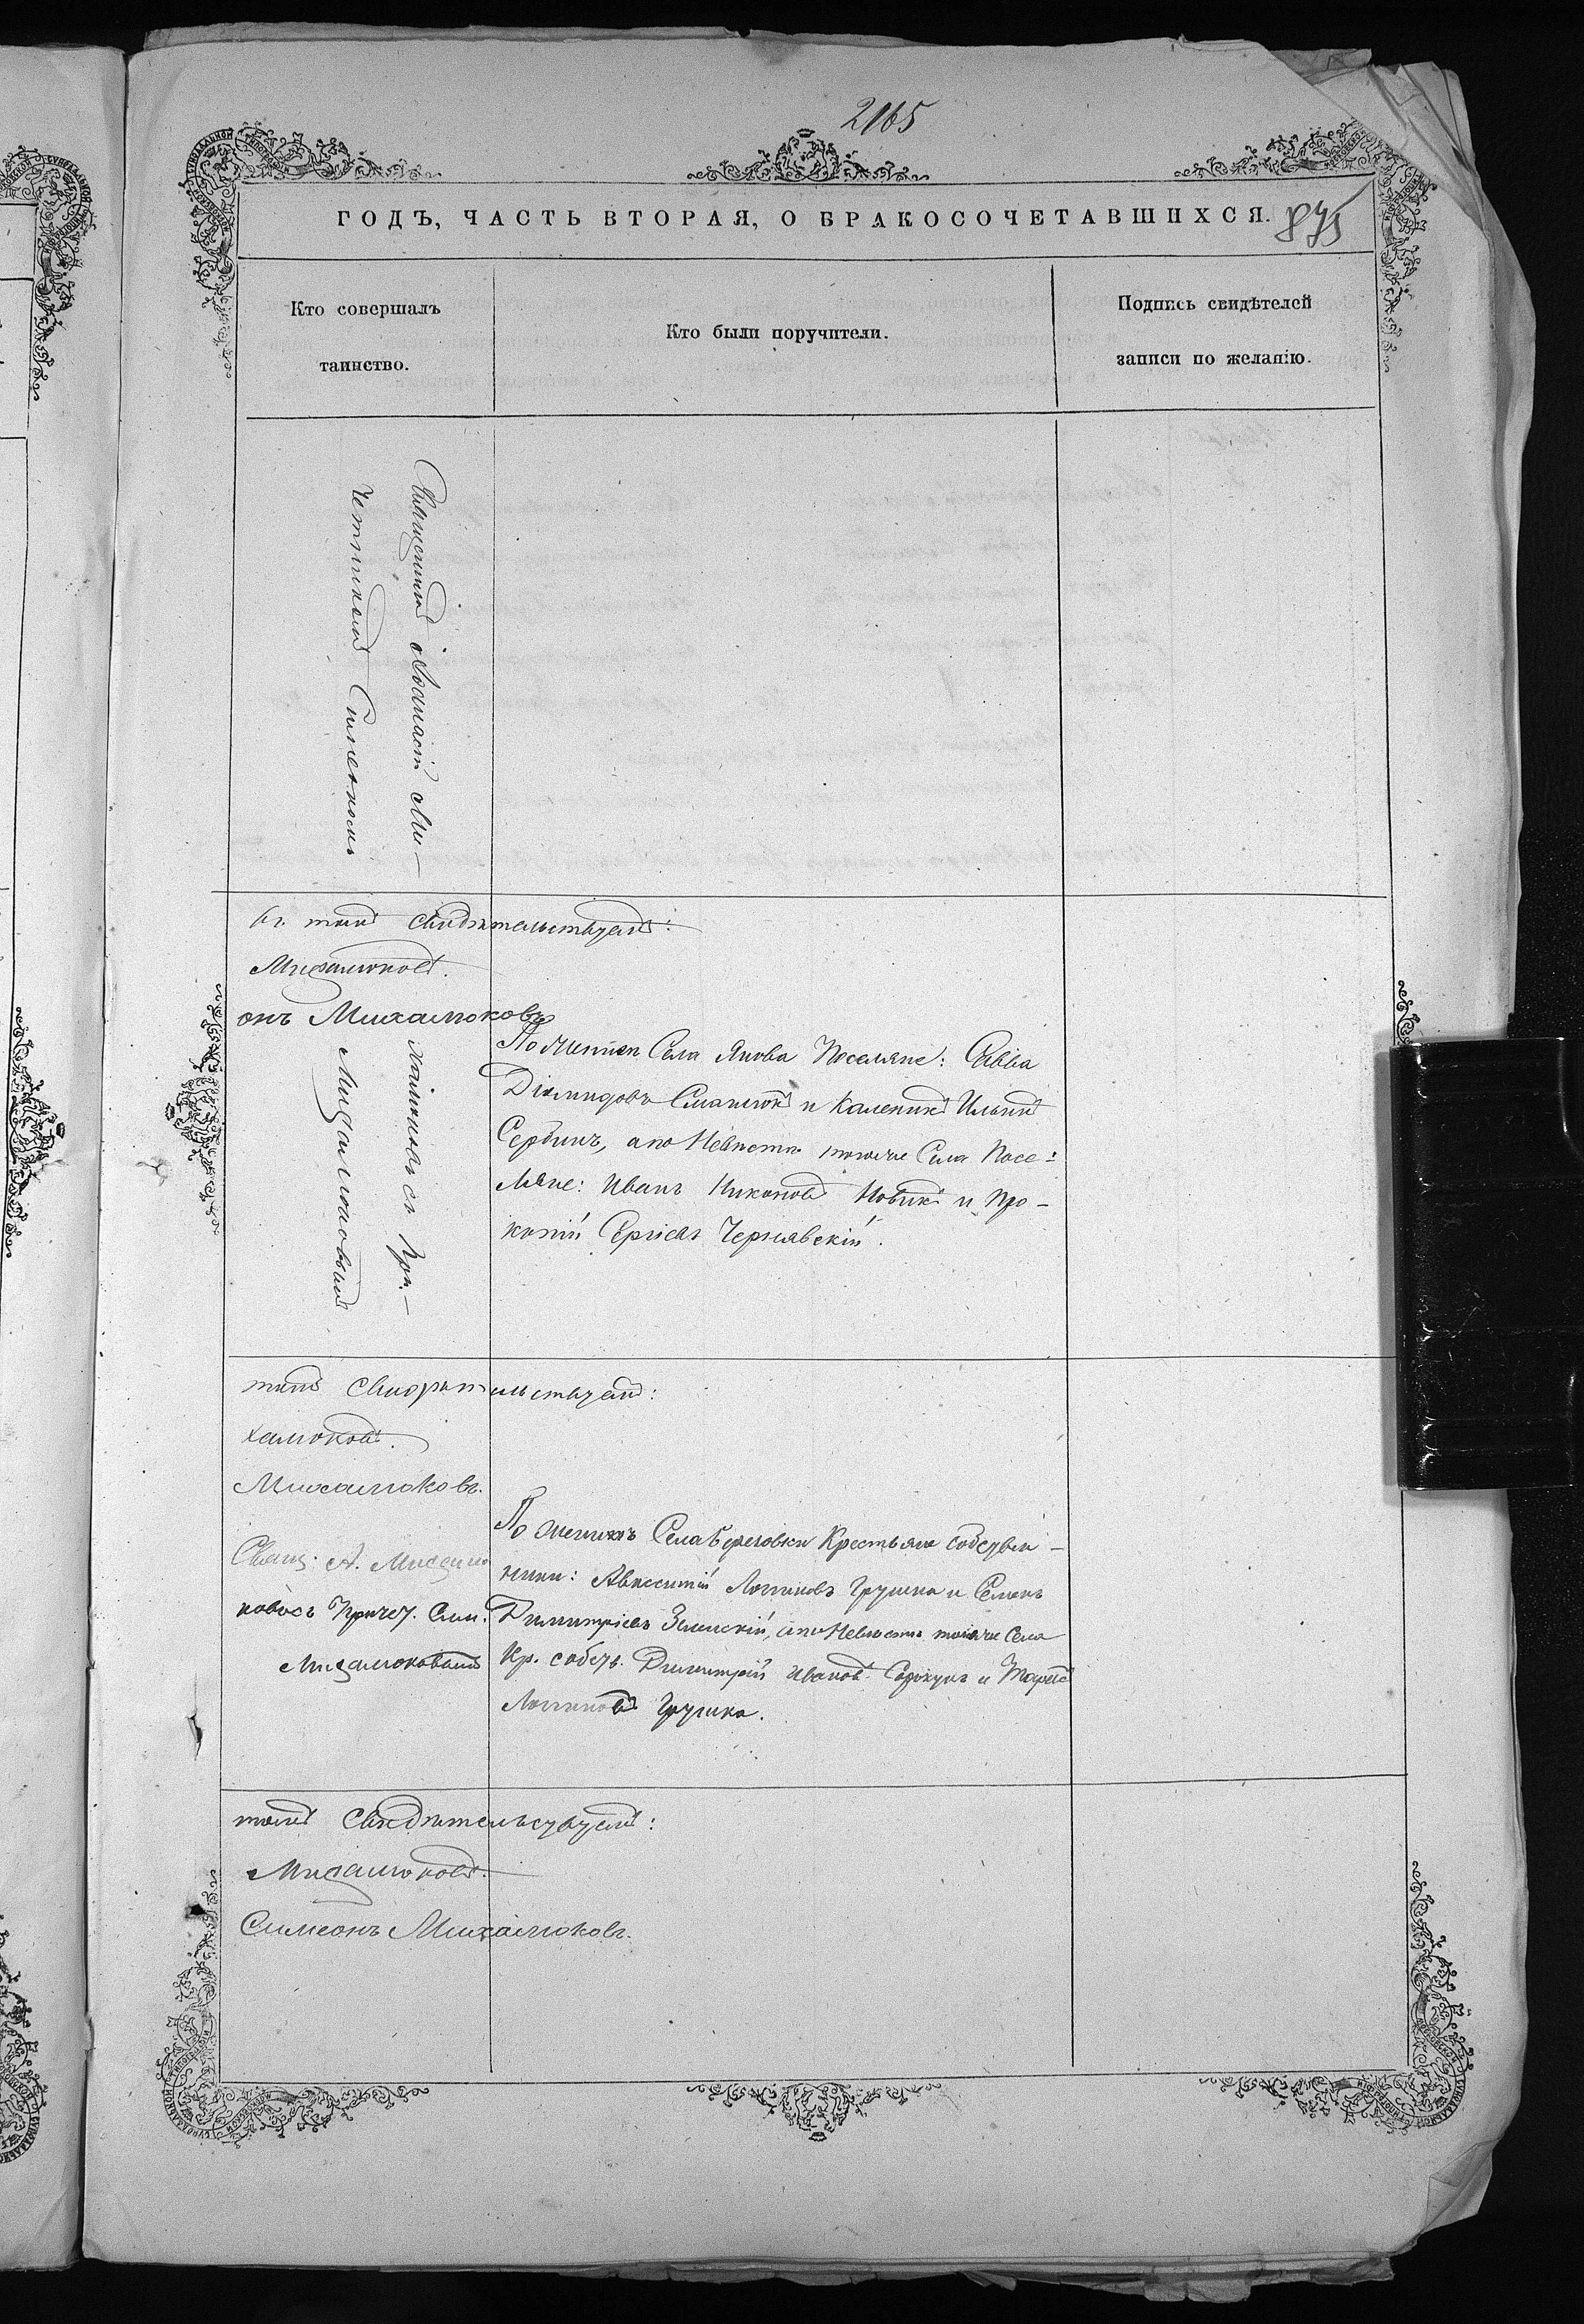 2165
ГОДЪ, ЧАСТЬ ВТОРАЯ, О БРАКОСОЧЕТАВШИХСЯ.
875
Кто совершалъ
таинство.
Кто были поручители.
Подпись свидѣтелей
записи по желанію.
Священникъ Аѳанасій Ми-
въ томъ свидѣтельствуемъ:
Михалюковъ.
онъ Михалюковъ
Михалюковымъ
Села Янова Поселяне: Савва
Діомидовъ и Каленикъ Ильинъ
Сербинъ, а по Невѣстѣ тогоже Села Посе-
ляне: Иванъ Никоновъ Новикъ и Про-
копій Сергіевъ Чернявскій.
томъ свидѣтельствуемъ:
халюковъ.
Михалюковъ.
Свящ. А. Михалю
ковъ съ Причет. Сим.
Михалюковымъ
По женихѣ Села Береговки Крестьяне собствен-
ники: Авксентій Логиновъ Грушка и Семенъ
Димитріевъ а по Невѣстѣ тогоже Села
Кр. собств. Димитрій Ивановъ и Тарасъ
Логиновъ Грушка.
томъ свидѣтельствуемъ:
Михалюковъ.
Симеонъ Михалюковъ.